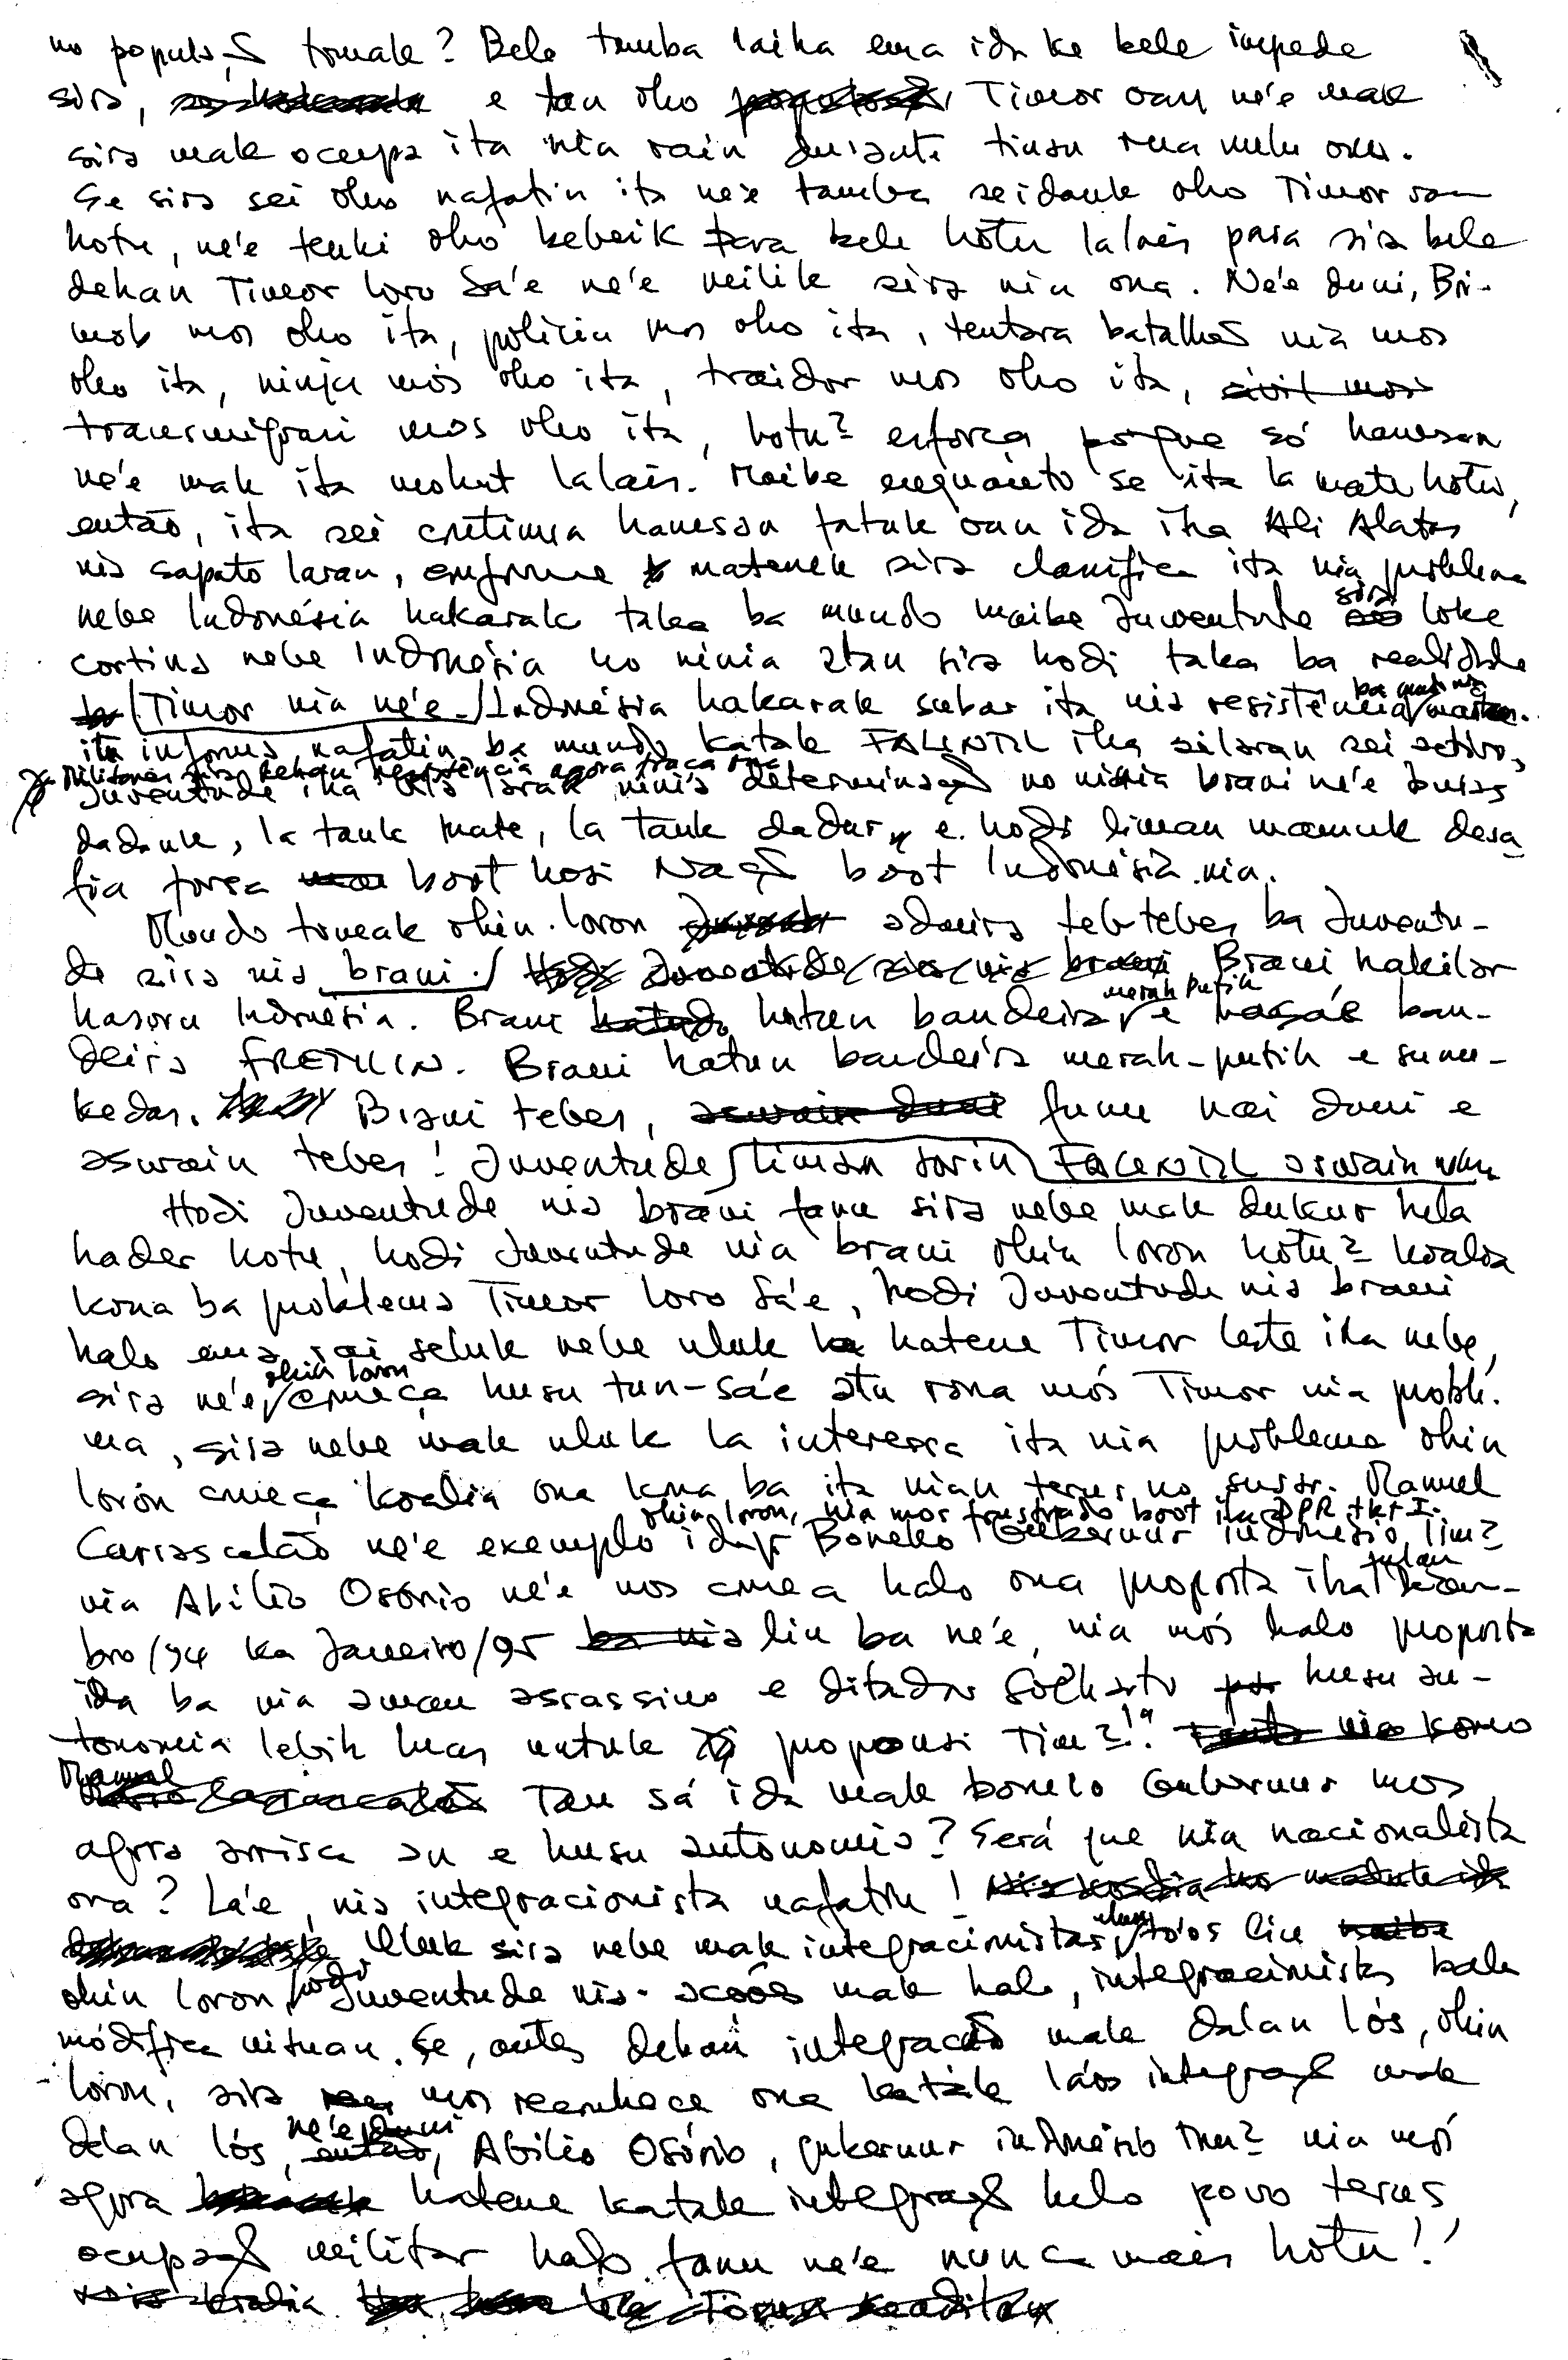 no populasão tomak? Bele tamba laiha ema ida ke bele impede
sira, e tan oho Timor oan ne'e mak
sira mak ocupa ita nia rain durante tinan rua nulu ona.
Se sira sei oho nafatin ita ne'e tamba seidauk oho Timor oan
hotu, ne'e tenki oho bebeik para bele hotu lalais para sira bele
dehan Timor Loro Sa'e ne'e neilik sira nin ona. Ne'e duni, Bri-
mob mos oho ita, policia mos oho ita, tentara batalhão nia mos
oho ita, ninja mós oho ita, traidor mos oho ita, civil mos
transmigrasi mos oho ita, hotu2 esforca porque só hanesan
ne'e mak ita mohut lalais. Maibe enquanto se ita la mate hotu,
então, ita sei continua hanesan fatuk oan ida iha Ali Alatas
nia sapato laran, conforme matenek sira clarifica ita nia problema
nebe Indonésia hakarak taka ba mundo maibe Juventude sira loke
cortina nebe Indonésia ho ninia atan sira hodi taka ba realidade
Timor nia ne'e. Indonésia hakarak subar ita nia resistência ba mundo
ita informa nafatin ba mundo katak FALINTIL iha ailaran sei activo,
Militares sira dehan resistência agora fraca ona
Juventude iha vila laran ninia determinasão no ninia brani ne'e buras
dadauk, la tauk mate, la tauk dadur, e hodi liman mamuk desa
fia forsa boot hosi Nasão boot Indonésia nia.
Mundo tomak ohin loron admira tebtebes ba Juventu-
de sira nia brani. Brani hakilar
hasoru Indonésia. Brani hatun bandeira merah putih e hasa'e ban-
deira FRETILIN. Brani hatun bandeira merah-putih e sunu
kedas. Brani tebes, aswain duni funu nai duni e
aswain tebes! Juventude liman sorin FALINTIL aswain
Hodi Juventude nia brani fanu sira nebe mak dukur hela
hader hotu, hodi Juventude nia brani ohin loron hotu2 koalia
kona ba problema Timor Loro Sa'e, hodi Juventude nia brani
halo ema rai seluk nebe uluk la hatene Timor Leste iha nebe,
sira ne'e ohin loron comeca husu tun-sa'e atu rona mós Timor nia proble-
ma, sira nebe mak uluk la interessa ita nia problema ohin
loron comeca koalia ona kona ba ita nian terus no susar. Manuel
Carrascalão ne'e exemplo ida ohin loron, nia mos frustrado boot iha DPR tkt I. Boneko Gubernur indonésio Tim2
nia Abílio Osório ne'e mos comeca halo ona proposta iha fulan
bro/94 ka Janeiro/95 liu ba ne'e, nia mós halo proposta
ida ba nia aman assassino e ditador Soeharto husu au-
tonomia lebih luas untuk propinsi Tim2!?
Tan sá ida mak boneco Gubernur mos
agora arrisca an e husu autonomia? Será que nia nacionalista
ona? La'e, nia integracionista nafatin!
Uluk sira nebe mak integracionistas to'os liu
ohin loron, hodi Juventude nia acoões mak halo, integracionista balu
módifica uituan. Se, antes dehan integracão mak dalan lós, ohin
loron, sira mos reconhece ona katak láos integrasão mak
dalan lós, ne'e duni, Abílio Osório, gubernur indonésio Tim2 nia mós
agora hatene katak integrasão halo povo terus
ocupasão militar halo funu ne'e nunca mais hotu!!